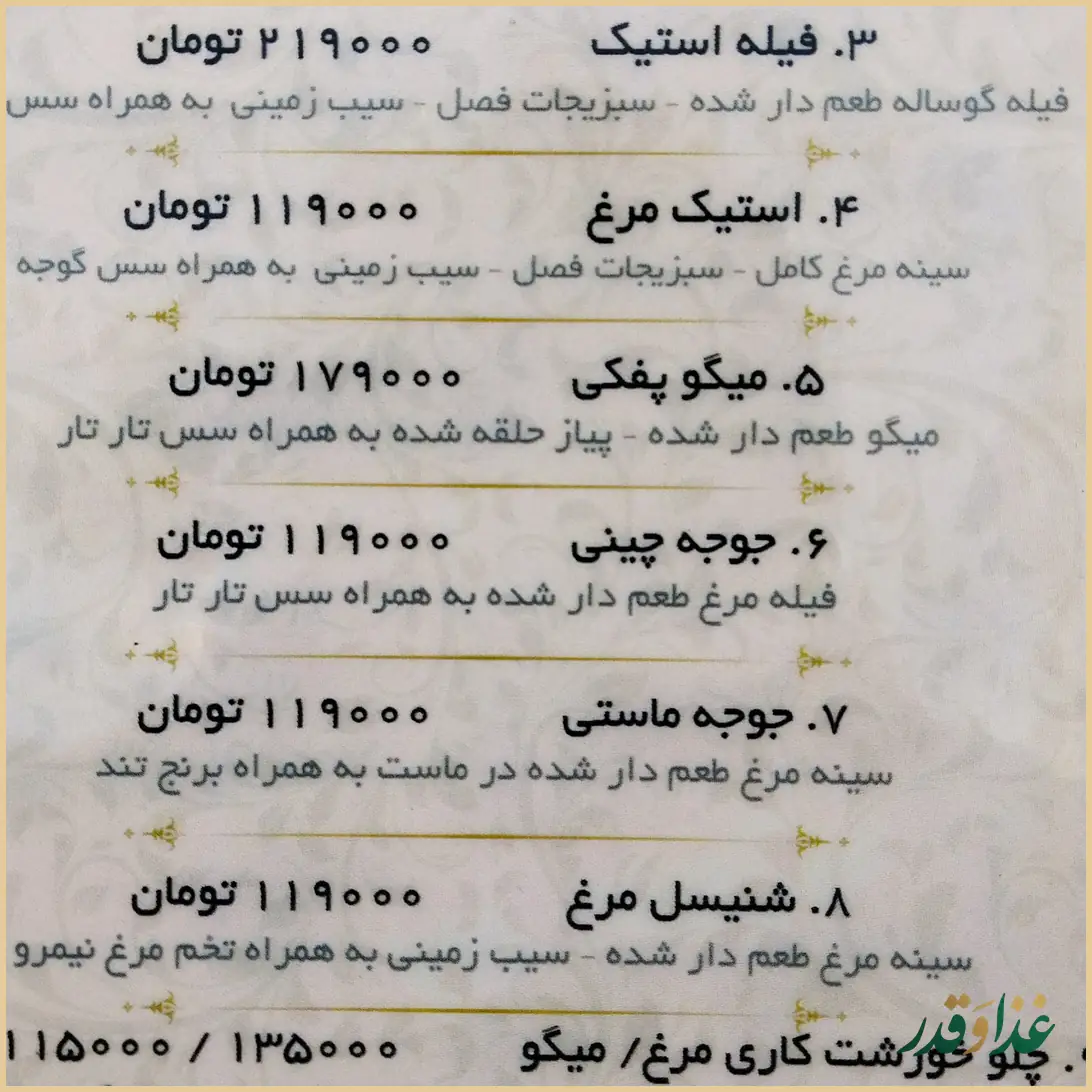 ۳. فیله استیک ۲۱۹۰۰۰ تومان
فیله گوساله طعم دار شده - سبزیجات فصل - سیب زمینی به همراه سس
۴. استیک مرغ ۱۱۹۰۰۰ تومان
سینه مرغ کامل - سبزیجات فصل - سیب زمینی به همراه سس گوجه
۵. میگو پفکی ۱۷۹۰۰۰ تومان
میگو طعم دار شده - پیاز حلقه شده به همراه سس تار تار
۶. جوجه چینی ۱۱۹۰۰۰ تومان
فیله مرغ طعم دار شده به همراه سس تار تار
۷. جوجه ماستی ۱۱۹۰۰۰ تومان
سینه مرغ طعم دار شده در ماست به همراه برنج تند
۸. شنیسل مرغ ۱۱۹۰۰۰ تومان
سینه مرغ طعم دار شده - سیب زمینی به همراه تخم مرغ نیمرو
غذا و قدر
چلو خورشت کاری مرغ/ میگو ۱۳۵۰۰۰ / ۱۱۵۰۰۰